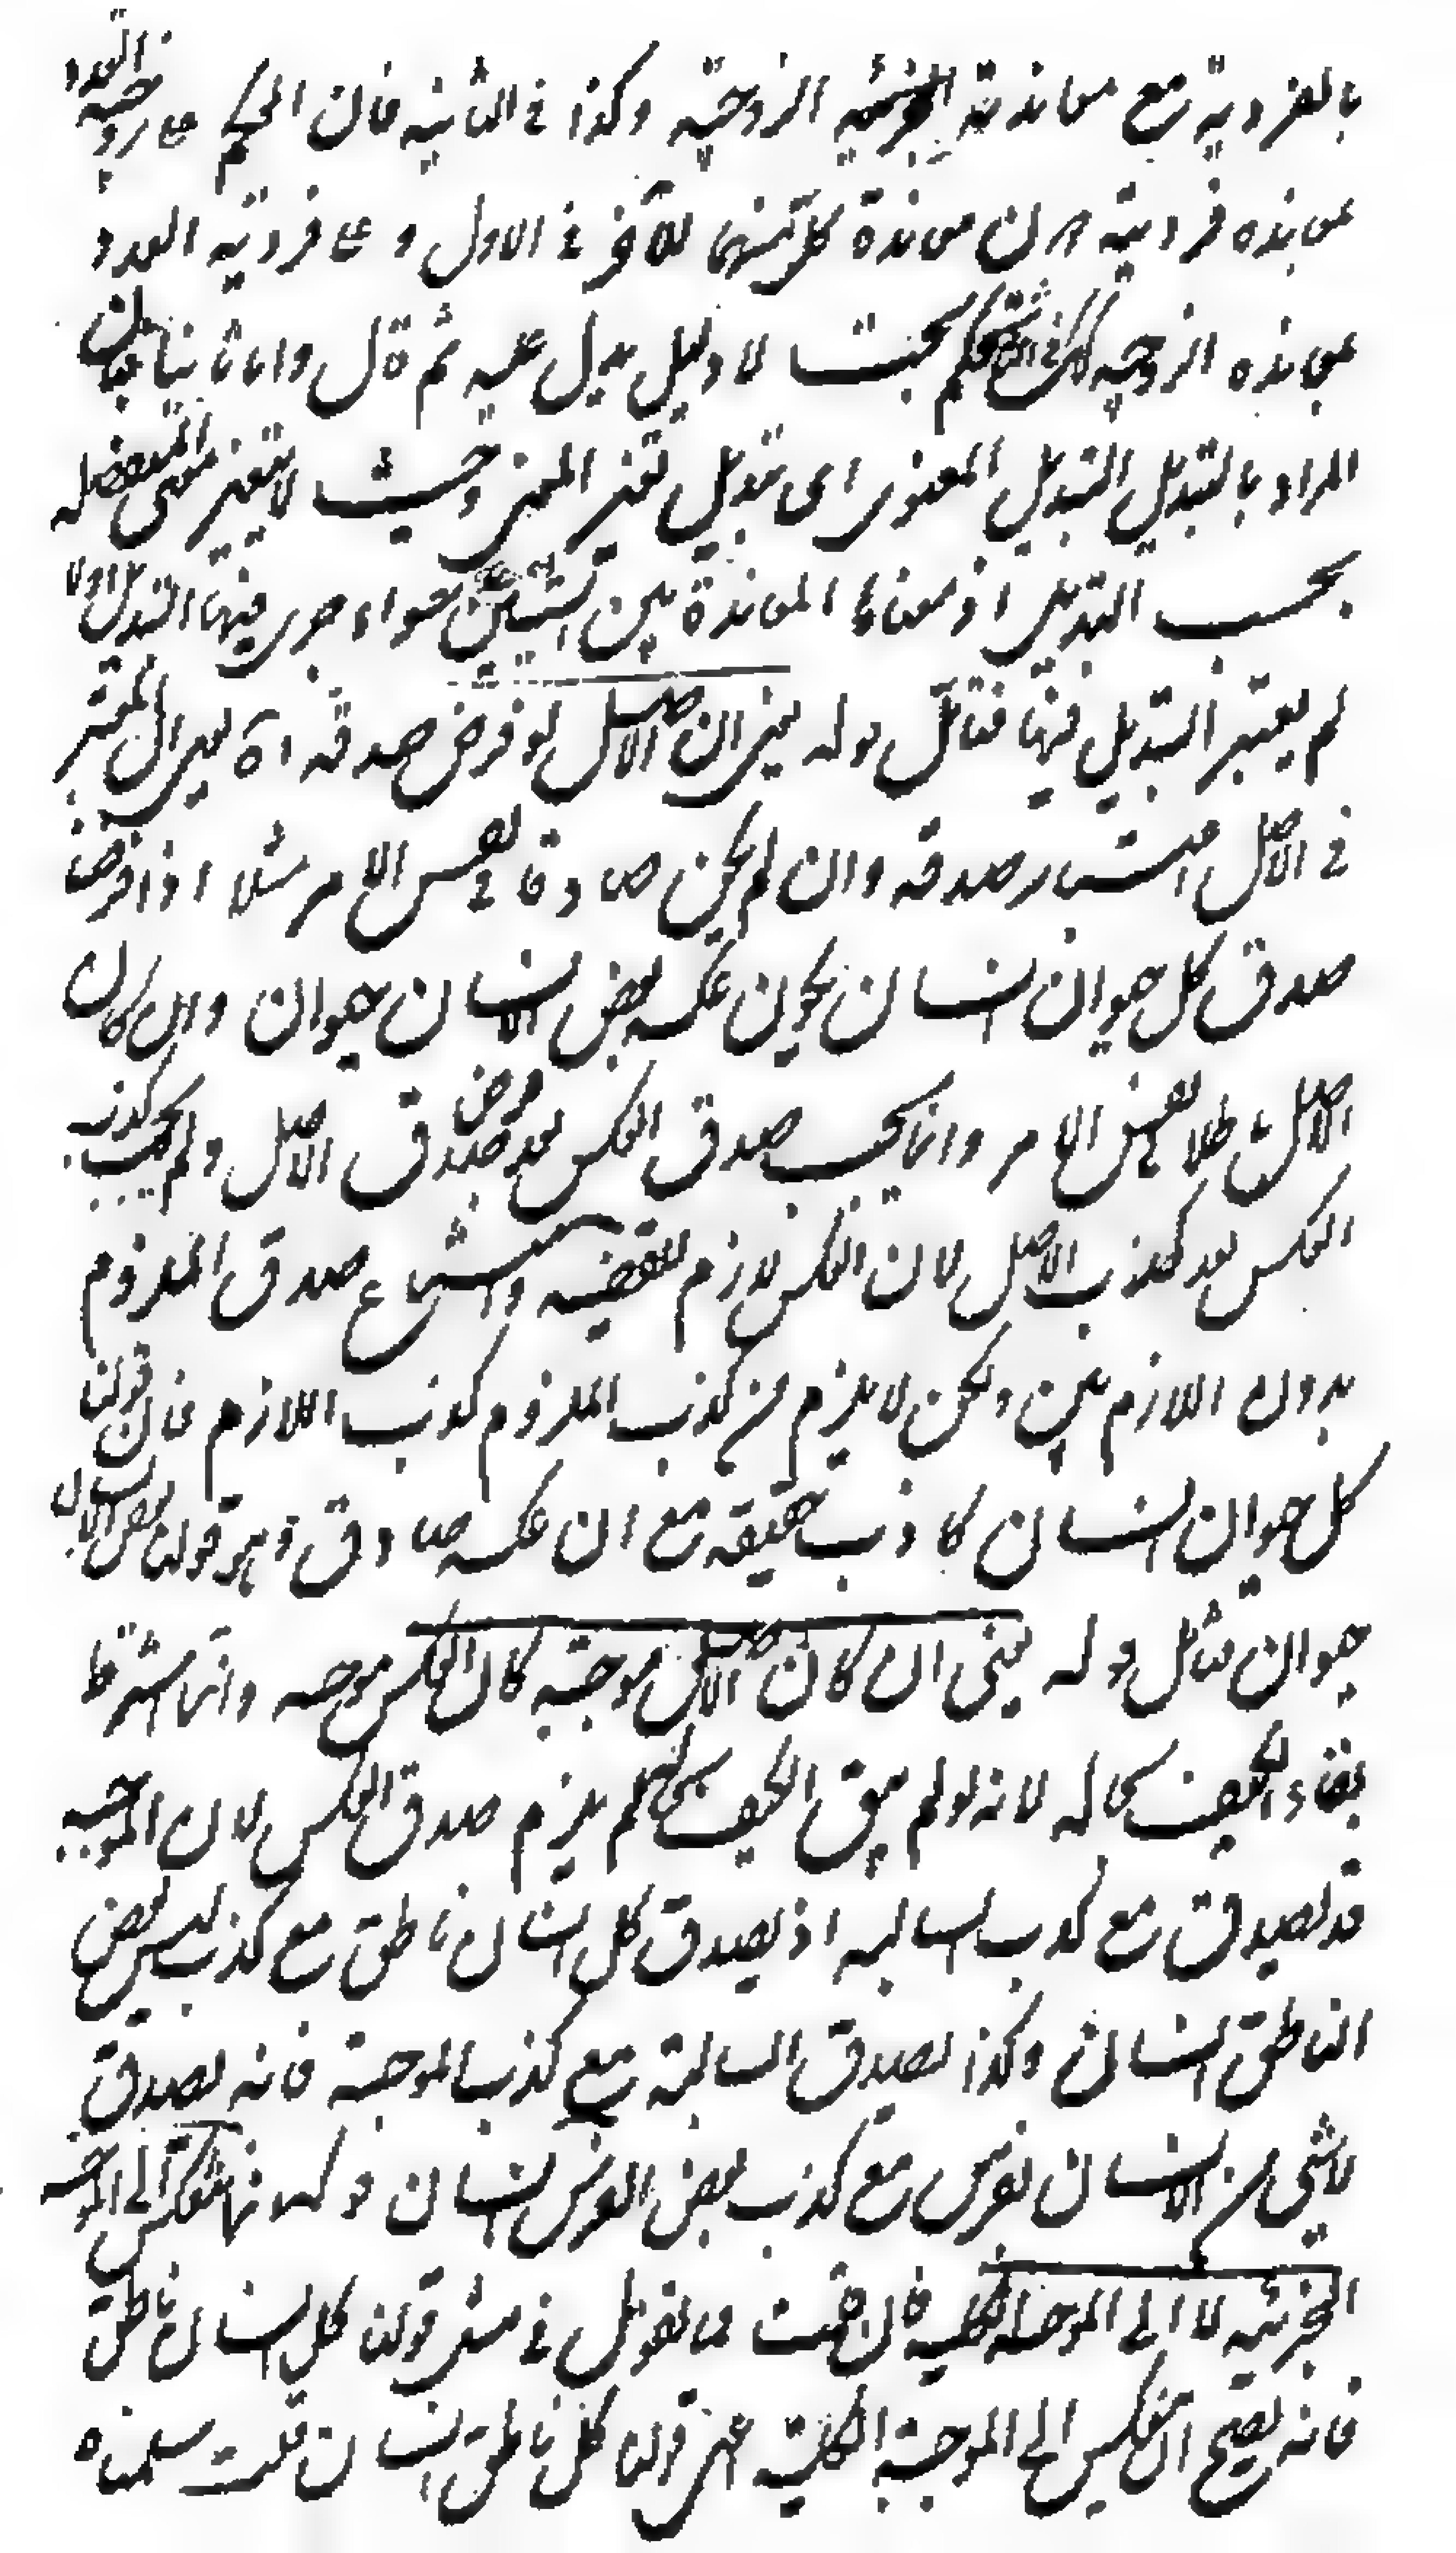 بالفردية مع معاندة الزوجية وكذا فى الثانية فان الحكم على زوجية العدد
بمعانده فردية لان معاندة كل منهما للآخر فى الاول و على فردية العدد
بمعانده الزوجية بحت لا دليل يدل عليه ثم قال واما ثانيا فبان
المراد بالتبديل التبديل المعنوى اى تبديل تغير المعنى وحيث لا يتغير معنى المنفصلة
بحسب التبديل اذ معناها المعاندة بين الشيئين سواء جرى فيها التبديل او
لم يعتبر التبديل فيها فتأمل قوله يعنى ان الاصل لو فرض صدقه اه يعنى ان المعتبر
فى الاصل اعتبار صدقه وان لم يكن صادقا فى نفس الامر مثلا اذا فرض
صدق كل حيوان انسان يكون عكسه بعض الانسان حيوان وان كان
الاصل باطلا فى نفس الامر وانما يجب صدق العكس بعد فرض صدق الاصل ولم يجب كذب
العكس بعد كذب الاصل لان العكس لازم للقضية وامتناع صدق الملزوم
بدون اللازم بين ولكن لا يلزم من كذب الملزوم كذب اللازم فان قولنا
كل حيوان انسان كاذب حقيقة مع ان عكسه صادق وهو قولنا بعض الانسان
حيوان فتأمل قوله يعنى ان كان الاصل موجبة كان العكس موجبه وانما اشترط
بقاء الكيف بحاله لانه لو لم يبق الكيف بحاله لم يلزم صدق العكس لان الموجبه
قد تصدق مع كذب السالبه اذ يصدق كل انسان ناطق مع كذب ليس بعض
الناطق انسان وكذا تصدق السالبة مع كذب الموجبة فانه تصدق
لا شئ من الانسان بفرس مع كذب بعض الفرس انسان قوله انما تنعكس الى الموجبه
الجزئيه لا الى الموجبه الكليه فان قلت ما تقول فى مثل قولنا كل انسان ناطق
فانه يصح انعكاس الى الموجبة الكلية اعنى قولنا كل ناطق انسان قلت سلمناه